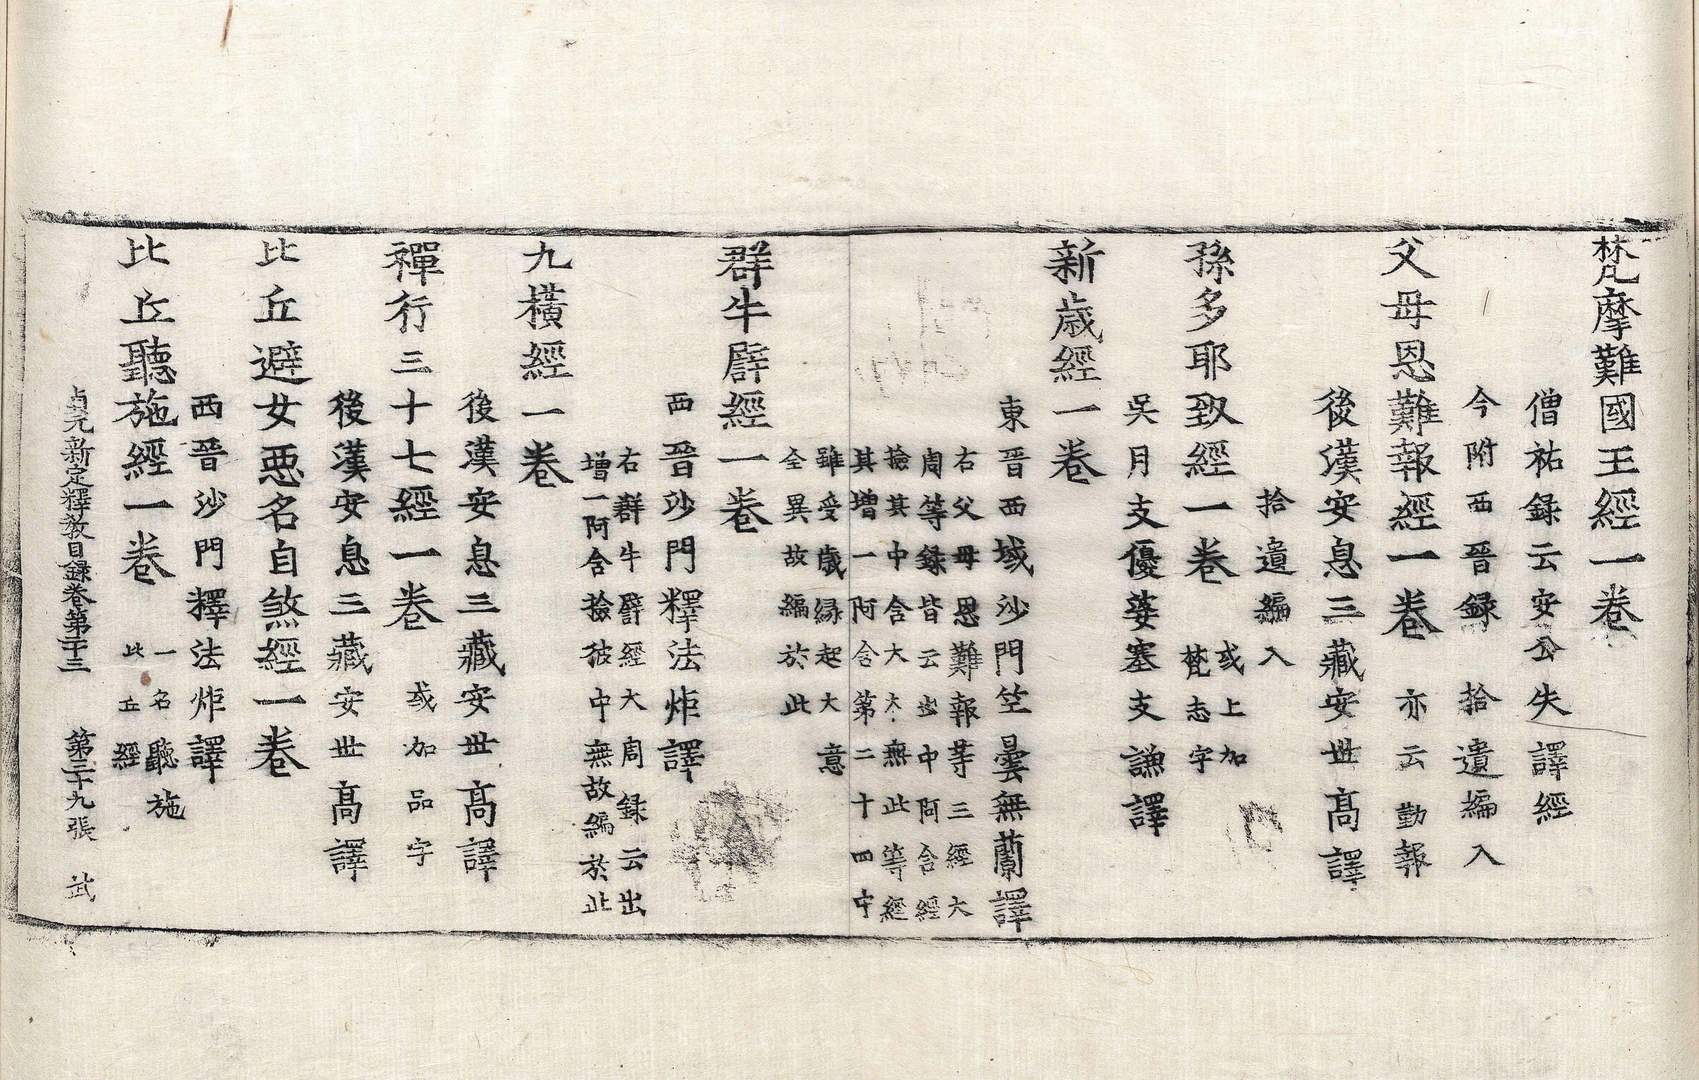 梵摩難國王經一卷
僧祐録云安公失譯經
今附西晉録 拾遺編入
父母恩難報經一卷 亦云勤報
後漢安息三藏安世高譯
拾遺編入
孫多耶致經一卷 或上加
梵志字
吳月支優婆塞支謙譯
新歲經一卷
東晉西域沙門竺曇無蘭譯
右父母恩難報等三經大
周等録皆云出中阿含經
撿其中含大本無此等經
其增一阿含第二十四中
雖受歲縁起大意
全異故編於此
群牛譬經一卷
西晉沙門釋法炬譯
右群牛譬經大周録云出
增一阿含撿彼中無故編於此
九橫經一卷
後漢安息三藏安世高譯
禪行三十七經一卷 或加品字
後漢安息三藏安世高譯
比丘避女惡名自煞經一卷
西晉沙門釋法炬譯
比丘聽施經一卷 一名聽施
比丘經
貞元新定釋教目録卷第二十三 第三十九張 武